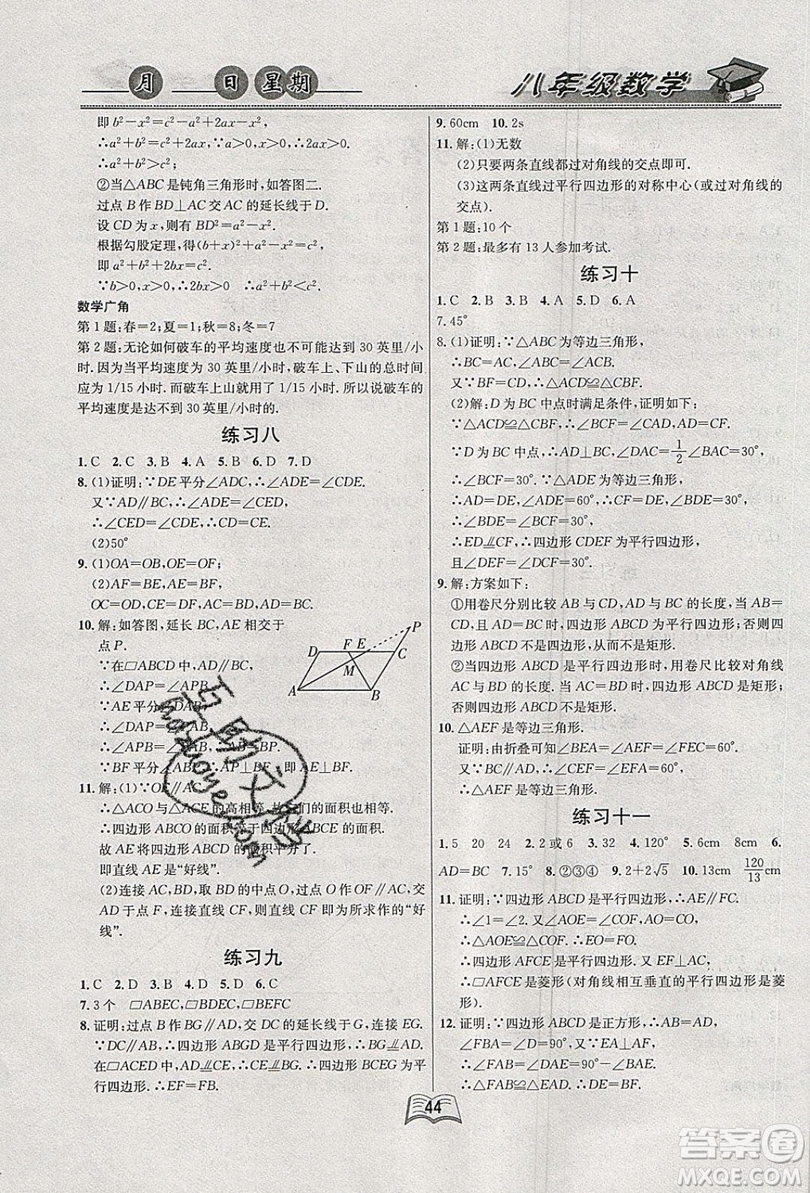 月 日 星期
八年级数学
即b²-x²=c²-a²+2ax-x².
∴a²+b²=c²+2ax. ∵a>0,x>0,∴2ax>0.
∴a²+b²>c²;
②当△ABC是钝角三角形时,如答图二.
过点B作BD⊥AC交AC的延长线于D.
设CD为x,则有BD²=a²-x²
根据勾股定理,得(b+x)²+a²-x²=c².
即a²+b²+2bx=c².
∵b>0,x>0,∴2bx>0,∴a²+b²<c².
数学广角
第1题:春=2;夏=1;秋=8;冬=7
第2题:无论如何破车的平均速度也不可能达到30英里/小
时.因为当平均速度为30英里/小时时,破车上、下山的总时间
应为1/15小时.而破车上山就用了1/15小时.所以说破车的
平均速度是达不到30英里/小时的.
练习八
1.C 2.C 3.B 4.A 5.B 6.D 7.D
8.(1)证明:∵DE平分∠ADC,∴∠ADE=∠CDE.
又∵AD∥BC,∴∠ADE=∠CED,
∴∠CED=∠CDE,∴CE=CD.
(2)50°
9.(1)OA=OB,OE=OF;
(2)AF=BE,AE=BF,
OC=OD,CE=DF,CF=DE.
10.解:如答图,延长BC,AE相交于
点P.
∵在□ABCD中,AD∥BC,
∴∠DAP=∠APB.
∵AE平分∠DAB,
∴∠DAP=∠PAB,
∴∠APB=∠PAB,∴AB=BP.
∵BF平分∠ABP,∴AP⊥BF,即AE⊥BF.
P
D F E C
M
A B
11.解:(1)∵OE∥AC,
∴△ACO与△ACE的高相等,故它们的面积也相等.
∴四边形ABCO的面积等于四边形ABCE的面积.
故AE将四边形ABCD的面积平分了.
即直线AE是“好线”.
(2)连接AC,BD,取BD的中点O,连接AO,CO,AF,过
点O作OE∥AF交CD于点E,连接FE,
于点F,连接CF,则直线CF即为所求作的“好
线”.
练习九
1.C 2.C 3.A 4.D 5.D 6.C
7.3个 □ABEC,□BDEC,□BEFC
8.证明:过点B作BG∥AD,交DC的延长线于G,连接EG.
∵DC∥AB,∴四边形ABGD是平行四边形,∴BG=AD.
在□ACED中,AD∥CE,AD=CE,
∴CE∥BG且CE=BG,∴四边形BCEG为平行四边
形,∴EF=FB.
9.60cm 10.2s
11.解:(1)无数
(2)只要两条直线都过对角线的交点即可.
(3)这两条直线过平行四边形的对称中心(或过对角线的
交点).
第1题:10个
第2题:最多有13人参加考试.
练习十
1.C 2.B 3.B 4.A 5.D 6.A
7.45°
8.(1)证明:∵△ABC为等边三角形,
∴BC=AC,∠ABC=∠ACB.
又∵BF=CD,∴△ACD≌△CBF.
(2)解:D为BC中点时满足条件,证明如下:
∵△ACD≌△CBF,∴∠BCF=∠CAD,AD=CF.
∵D为BC中点,∴AD⊥BC,∠DAC=1/2∠BAC=30°,
∴∠BCF=30°.∵△ADE为等边三角形,
∴AD=DE,∠ADE=60°,∴CF=DE,
∴∠BDE=30°,∴∠BCF=∠BDE=30°,
∴ED∥CF,∴四边形CDEF为平行四边形,
且∠DEF=∠BCF=30°.
9.解:方案如下:
①用卷尺分别比较AB与CD,AD与BC的长度,当AB=
CD且AD=BC时,四边形ABCD是平行四边形;否则四
边形ABCD不是平行四边形,从而不是矩形.
②当四边形ABCD是平行四边形时,用卷尺比较对角线
AC与BD的长度.若AC=BD,则四边形ABCD是矩形;
否则四边形ABCD不是矩形.
10.△AEF是等边三角形.
证明:由折叠可知∠BEA=∠FEA=∠FEC=60°.
又∵BC∥AD,∴∠AFE=∠FEC=60°,
∴△AEF是等边三角形.
练习十一
1.5 20 24 2.2或6 3.32 4.120° 5.6cm 8cm 6.
AD=BC 7.15° 8.②③④ 9.2+2√5 10.13cm 120/13cm
11.证明:∵四边形ABCD是平行四边形,∴AE∥FC.
∴∠1=∠2.又∠AOE=∠COF,AO=CO,
∴△AOE≌△COF.∴EO=FO.
∴四边形AFCE是平行四边形.又EF⊥AC,
∴□AFCE是菱形(对角线相互垂直的平行四边形是菱
形).
12.证明:∵四边形ABCD是正方形,∴AD=AB,
∠FAD=∠BAE=90°,AF=AE,
∴△FAD≌△EAB.∴BE=DF.
44
答案圈
MXQE.COM